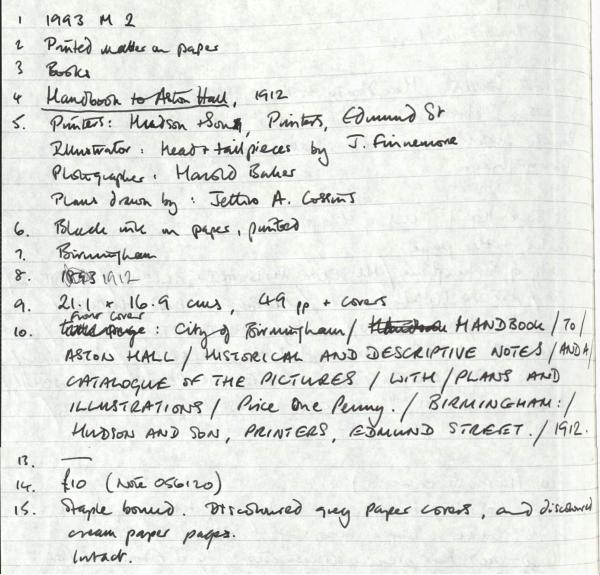 1 1993 M 2
2 Printed matter on paper
3 Books
4 Handbook to Aston Hall, 1912
5. Printers: Hudson + Son, Printers, Edmund St
Illustrator: head + tailpieces by J. Finnemore
Photographer: Harold Baker
Plans drawn by: Jethro A. Cossins
6. Black ink on paper, printed
7. Birmingham
8. 1912
9. 21.1 x 16.9 cms, 49 pp + covers
front cover
10. title page: City of Birmingham / Handbook HANDBOOK / TO /
ASTON HALL / HISTORICAL AND DESCRIPTIVE NOTES / AND A /
CATALOGUE OF THE PICTURES / WITH / PLANS AND
ILLUSTRATIONS / Price One Penny. / BIRMINGHAM: /
HUDSON AND SON, PRINTERS, EDMUND STREET. / 1912.
13. —
14. £10 (Note 056120)
15. Staple bound. Discoloured grey paper covers, and discoloured
cream paper pages.
Intact.